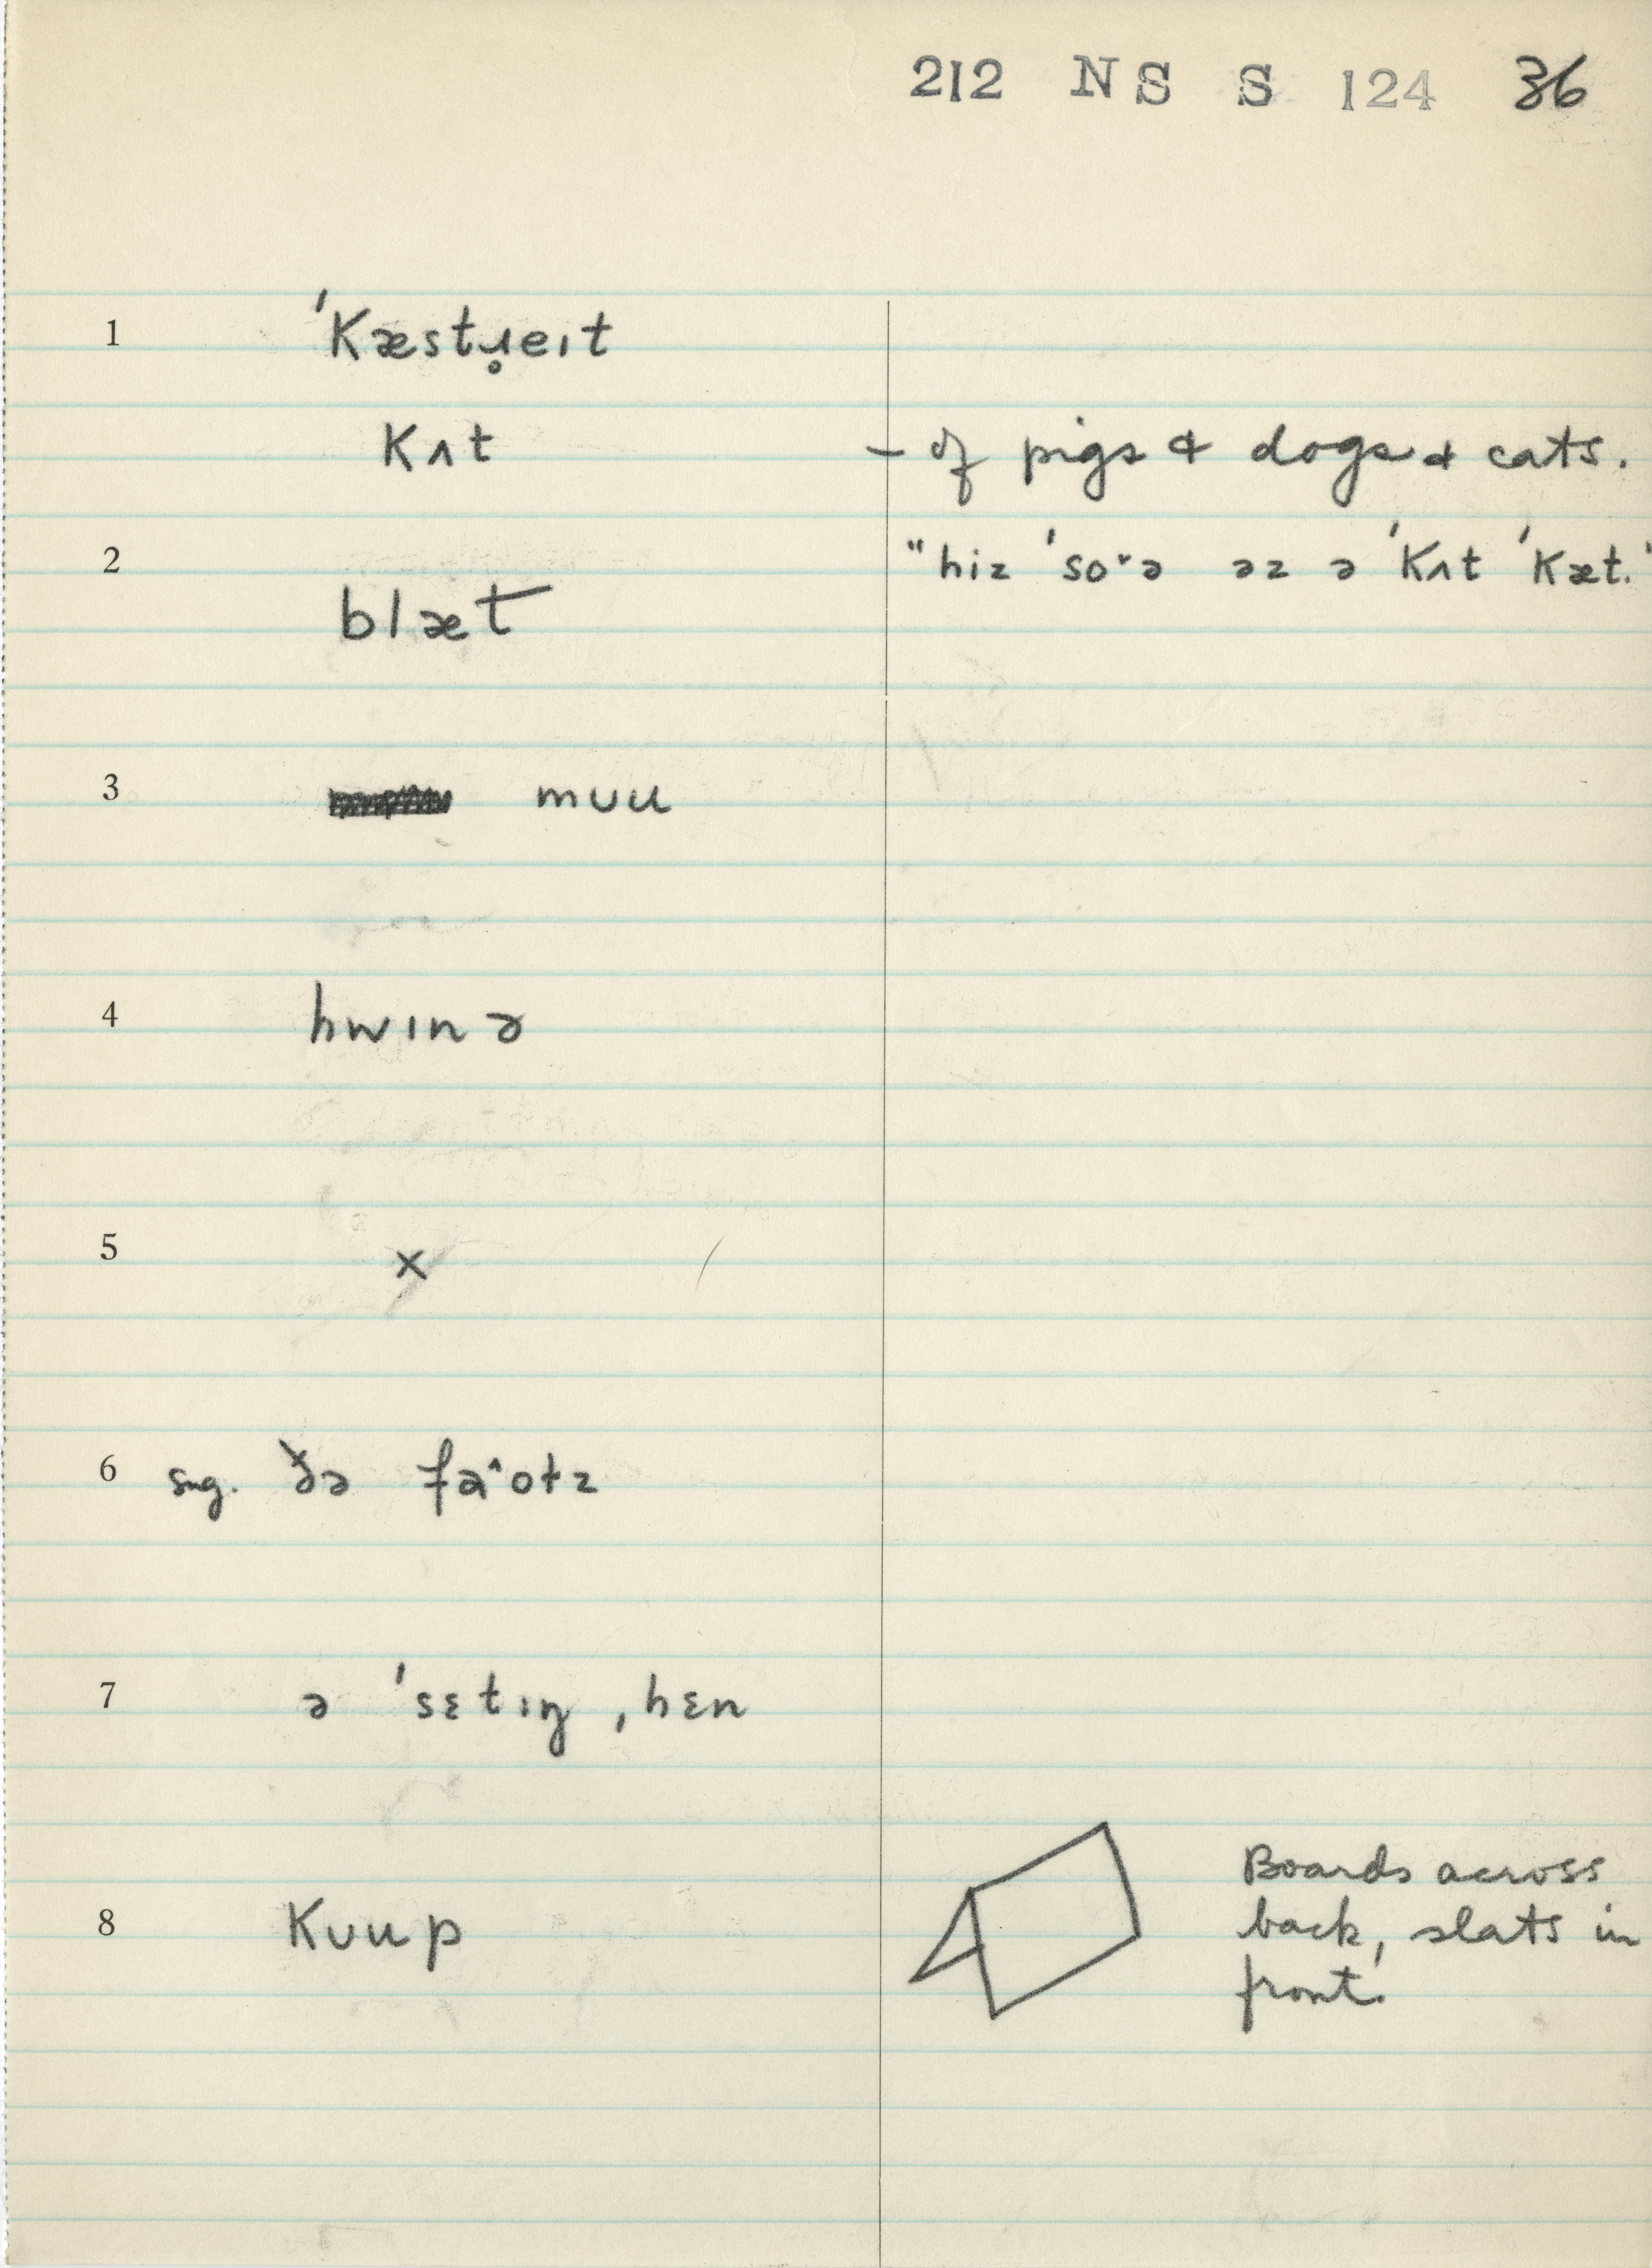 212 NS S 124 36
1 ˈkæstɹ̥eɪt
kʌt – of pigs & dogs & cats.
2 "hiz ˈso˞ə əz ə ˈkʌt ˈkæt."
blæt
3 mʊu
4 hwɪnə
5 x
6 sug. ðə fa^otz
7 ə ˈsɛtɪŋ ˌhɛn
8 kʊup
Boards across
back, slats in
front.